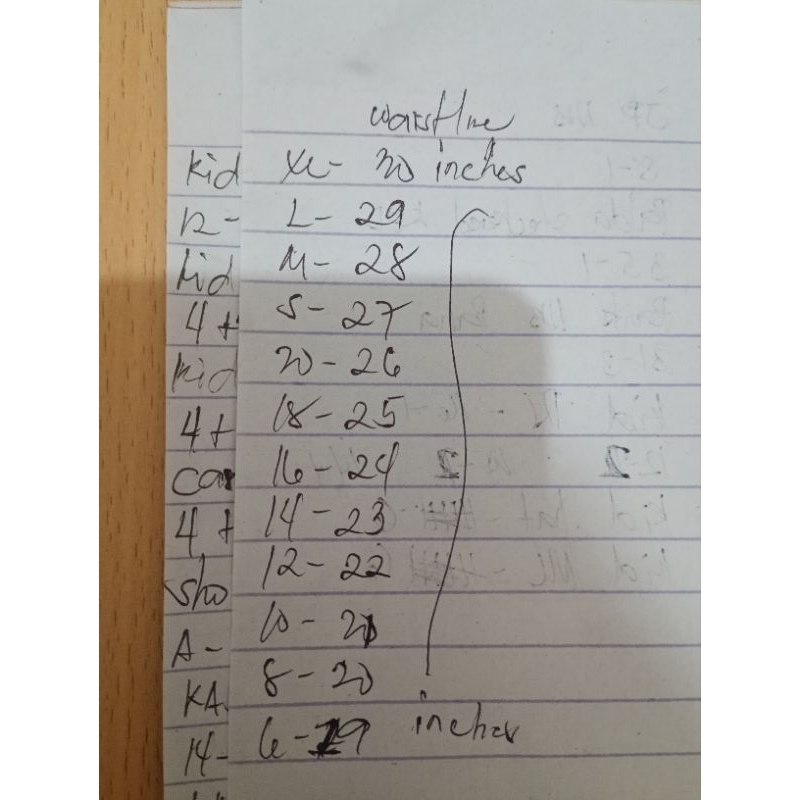 waistline
XL- 30 inches
L- 29
M- 28
S- 27
20- 26
18- 25
16- 24
14- 23
12- 22
10- 21
8- 20
6- 19 inches
kid
12-
kid
4+
kid
4+
4+
sho
A-
KA
14-